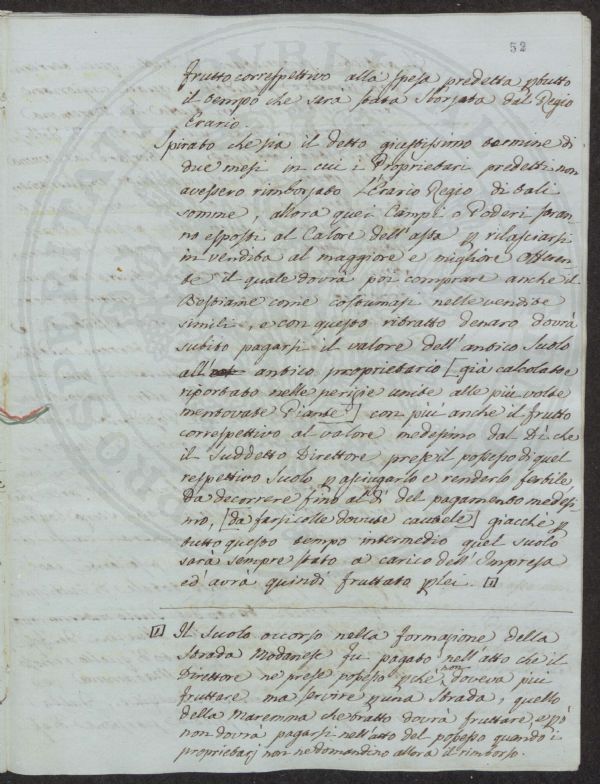 52
frutto correspettivo alla spesa predetta p tutto
il tempo che sarà stata sborsata dal Regio
Erario.
Spirato che sia il detto giustissimo termine di
due mesi in cui i Proprietari predetti non
avessero rimborsato l'Erario Regio di tali
somme, allora quei Campi, o Poderi saran-
no esposti al Calore dell'asta p rilasciarsi
in vendita al maggiore e migliore Offeren-
te il quale dovrà poi comprare anche il
Bestiame come costumasi nelle vendite
simili, e con questo ritratto denaro dovrà
subito pagarsi il valore dell'antico Suolo
all' antico proprietario [già calcolato e
riportato nelle perizie unite alle più volte
mentovate Piante] con più anche il frutto
correspettivo al valore medesimo dal Dì che
il Suddetto Direttore prese il possesso di quel
respettivo Suolo p asciugarlo e renderlo fertile
Da decorrere fino al Dì del pagamento medesi-
mo, [da farsi colle dovute cautele] giacchè p
tutto questo tempo intermedio quel suolo
sarà sempre stato a carico dell'Impresa
ed avrà quindi fruttato p lei. [1]
[1] Il Suolo occorso nella formazione della
Strada Modanese fu pagato nell'atto che il
Direttore ne prese possesso pchè non doveva più
fruttare ma servire p una Strada, quello
della Maremma che tratto dovrà fruttare, e pò
non dovrà pagarsi nell'atto del possesso quando i
proprietarj non ne domandino allora il rimborso.